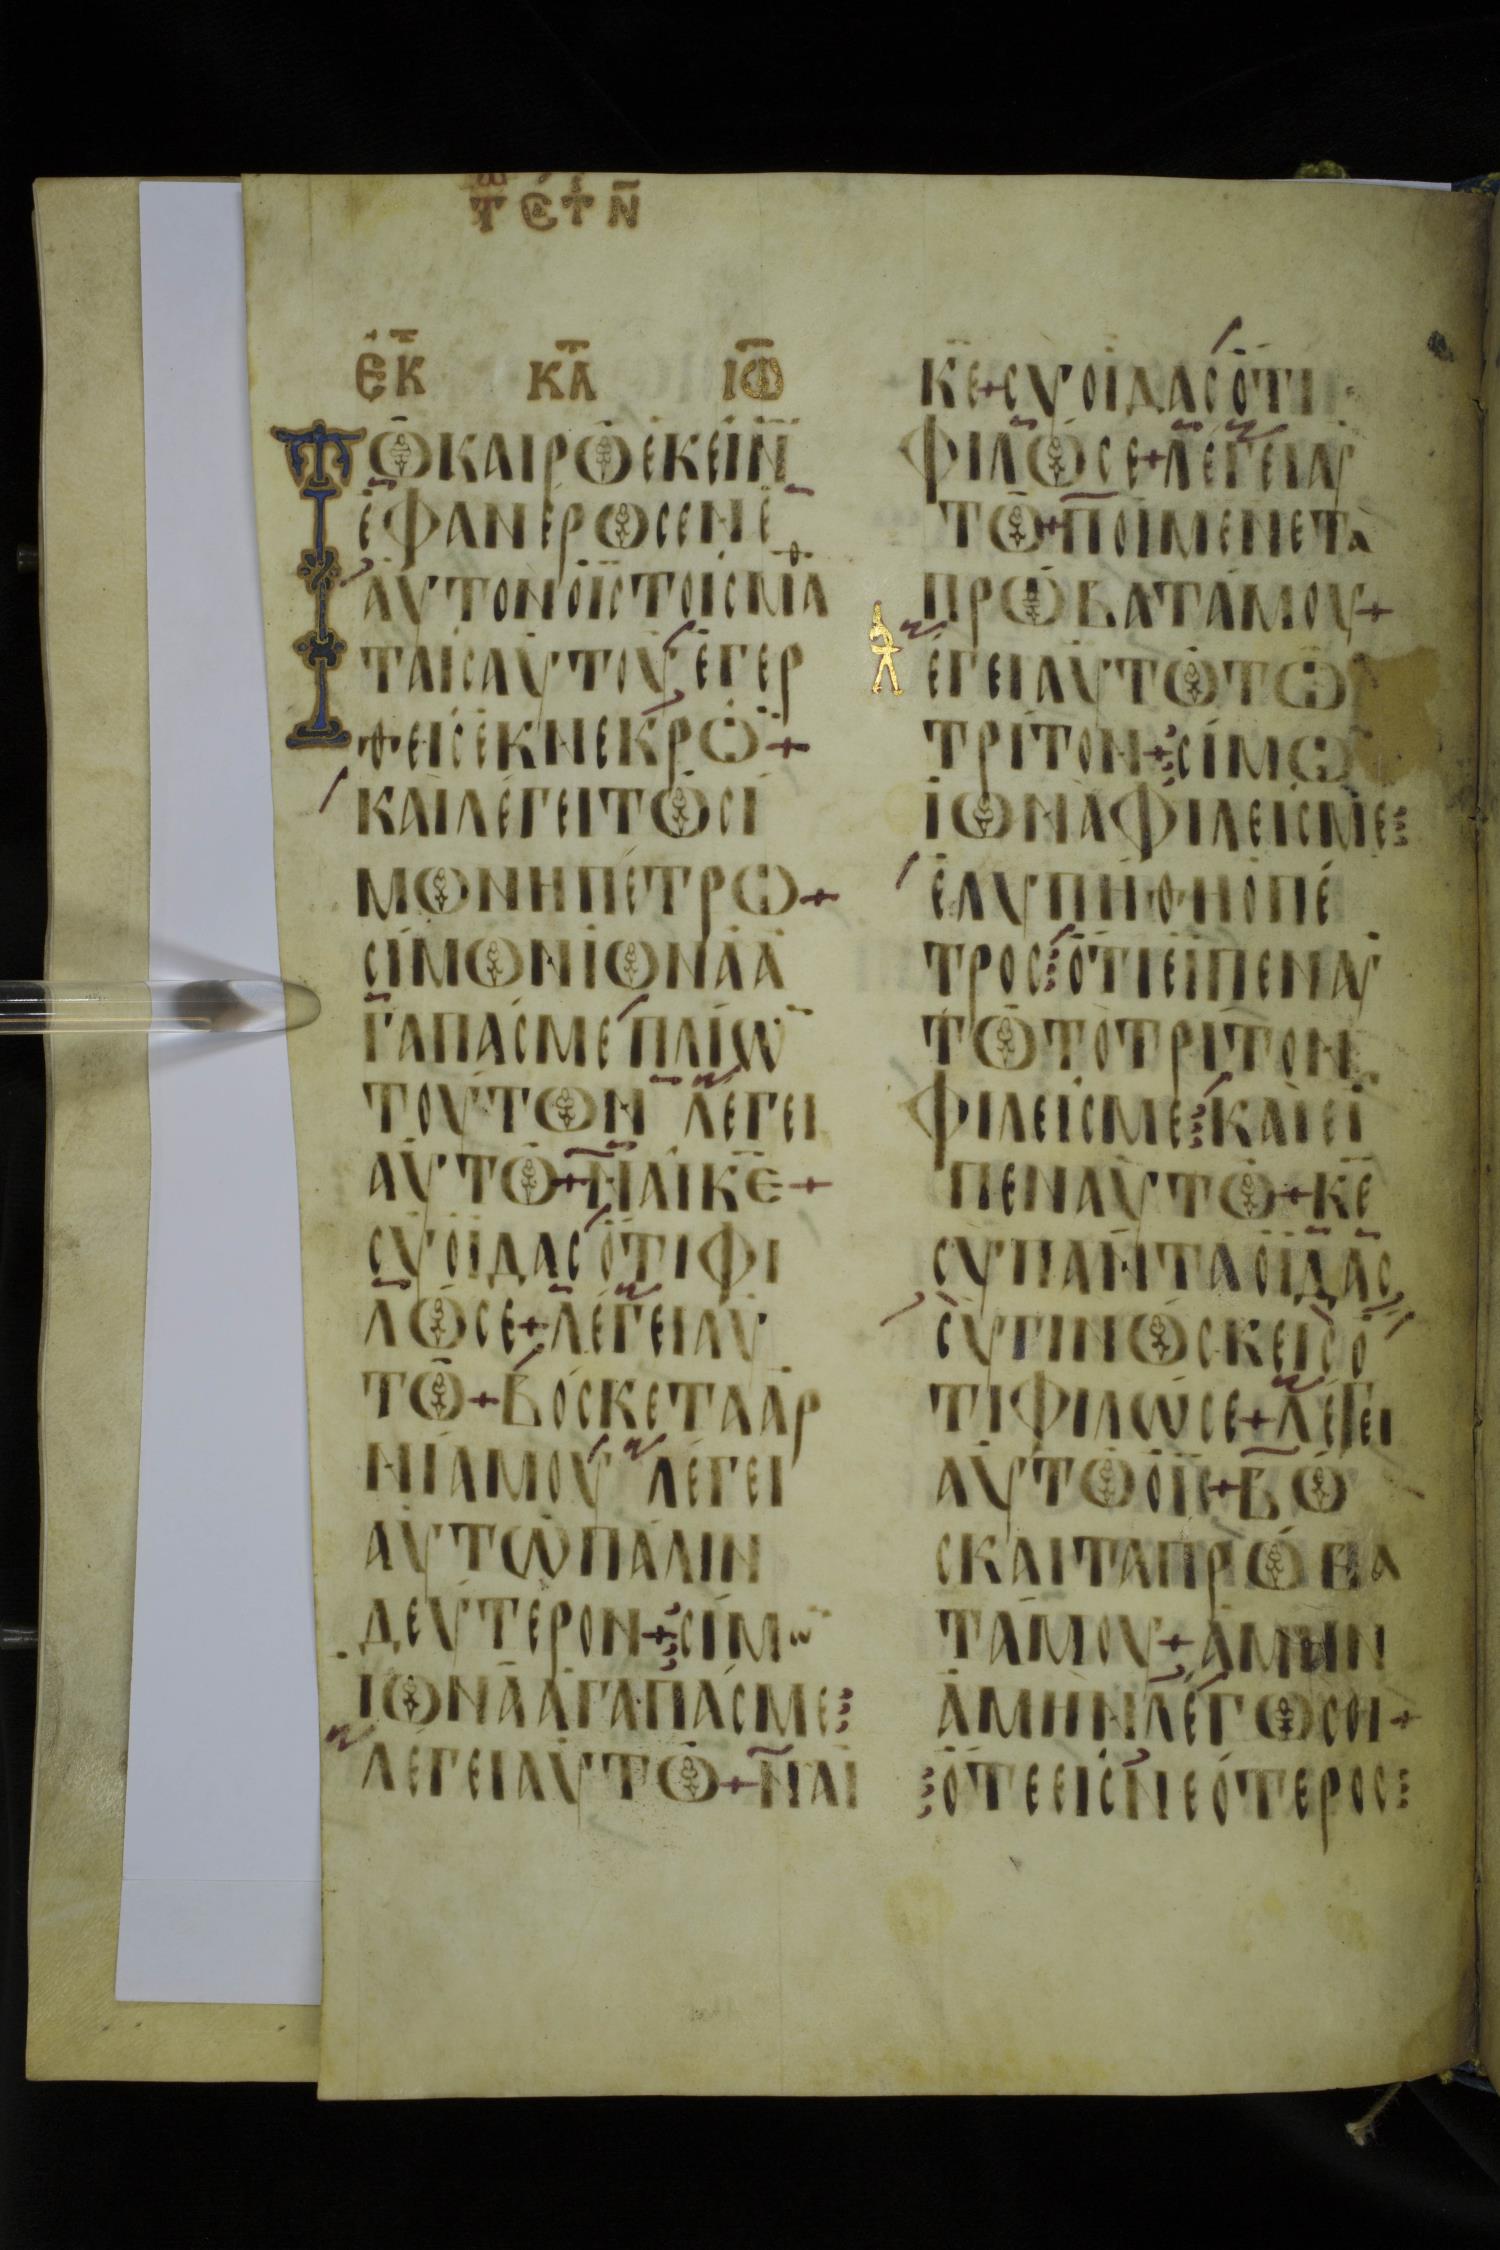 Τ Ϲ Τ Ν̅
ἘΚ ΚΑ ΙΩ
ΤΩ̂ΚΑΙΡΩ̂ΕΚΕΙΝ̈
ἘΦΑΝΕΡΩϹΕΝΕ
ΑΥΤΟΝΟΙ̅Ϲ̅ΤΟΙϹΜΑΘ
ΤΑΙϹΑΥΤΟΥ ΕΓΕΡ
ΘΕΙϹΕΚΝΕΚΡΩ̈+
ΚΑΙΛΕΓΕΙΤΩϹΙ
ΜΩΝΗΠΕΤΡΩ+
ϹΙΜΩΝΙΩΝΑΑ
ΓΑΠΑϹΜΕ ΠΛΙΩ̈
ΤΟΥΤΩΝ ΛΕΓΕΙ
ΑΥΤΩ+ΝΑΙΚ̅Ε̅+
ϹΥΟΙΔΑϹ ΟΤΙΦΙ
ΛΩϹΕ+ΛΕΓΕΙΑΥ
ΤΩ+ΒΟϹΚΕΤΑΑΡ
ΝΙΑΜΟΥ ΛΕΓΕΙ
ΑΥΤΩΠΑΛΙΝ
ΔΕΥΤΕΡΟΝ+ϹΙΜΩ̈
ΙΩΝΑΑΓΑΠΑϹΜΕ
ΛΕΓΕΙΑΥΤΩ+ΝΑΙ
Κ̅Ε̅+ϹΥΟΙΔΑϹ ΟΤΙ
ΦΙΛΩϹΕ+ΛΕΓΕΙΑΥ
ΤΩ+ΠΟΙΜΕΝΕΤΑ
ΠΡΩΒΑΤΑΜΟΥ+
ΛΕΓΕΙΑΥΤΩΤΩ
ΤΡΙΤΟΝ+ϹΙΜΩ
ΙΩΝΑΦΙΛΕΙϹΜΕ
ΕΛΥΠΗΘΗΟΠΕ
ΤΡΟϹ ΟΤΙΕΙΠΕΝΑΥ
ΤΩΤΟΤΡΙΤΟΝ
ΦΙΛΕΙϹΜΕ ΚΑΙΕΙ
ΠΕΝΑΥΤΩ+Κ̅Ε̅
ϹΥΠΑΝΤΑΟΙΔΑϹ
ϹΥΓΙΝΩϹΚΕΙϹΟ
ΤΙΦΙΛΩϹΕ+ΛΕΓΕΙ
ΑΥΤΩΟΙ̅Ϲ̅+ΒΩ
ϹΚΑΙΤΑΠΡΩΒΑ
ΤΑΜΟΥ+ΑΜΗΝ
ΑΜΗΝΛΕΓΩϹΟΙ+
ΟΤΕΕΙϹΝΕΟΤΕΡΟϹ